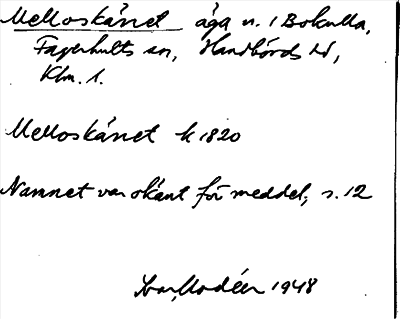 Melloskänet äga n. i Bokulla,
Fagerhults sn, Handbörds hd,
Klm. l.
Melloskänet k 1820
Namnet var okänt för meddel, s. 12
Ivar Modéer 1948